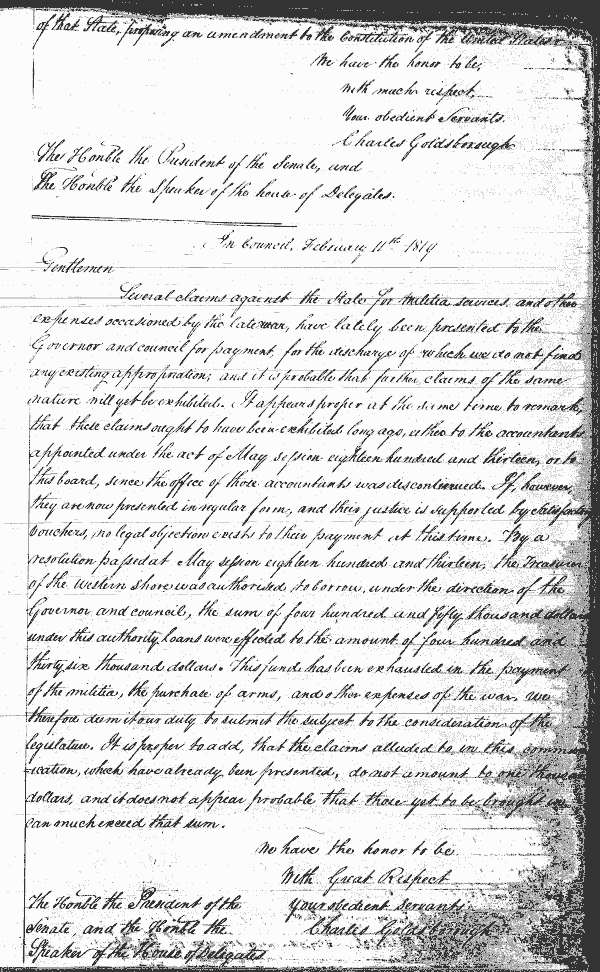 of that State, proposing an amendment to the Constitution of the United States.
We have the honor to be,
With much respect,
Your obedient Servants.
Charles Goldsborough
The Honble the President of the Senate, and
The Honble the Speaker of the house of Delegates.
In Council, February 11th 1819
Gentlemen
Several claims against the State for militia services, and other
expenses occasioned by the late war, have lately been presented to the
Governor and council for payment, for the discharge of which we do not find
any existing appropriation; and it is probable that further claims of the same
nature will yet be exhibited. It appears proper at the same time to remark,
that these claims ought to have been exhibited long ago, either to the accountants
appointed under the act of May session eighteen hundred and thirteen, or to
this board, since the office of those accountants was discontinued. If, however,
they are now presented in regular form, and their justice is supported by satisfactory
vouchers, no legal objection exists to their payment at this time. By a
resolution passed at May session eighteen hundred and thirteen, the Treasurer
of the western shore was authorised to borrow, under the direction of the
Governor and council, the sum of four hundred and fifty thousand dollars
under this authority loans were effected to the amount of four hundred and
thirty six thousand dollars. This fund has been exhausted in the payment
of the militia, the purchase of arms, and other expenses of the war. We
therefore deem it our duty to submit the subject to the consideration of the
legislature. It is proper to add, that the claims alluded to in this commun
=ication, which have already been presented, do not amount to one thousand
dollars, and it does not appear probable that those yet to be brought in
can much exceed that sum.
We have the honor to be
With Great Respect
The Honble the President of the Your obedient servants
Senate, and the Honble the Charles Goldsborough
Speaker of the House of Delegates